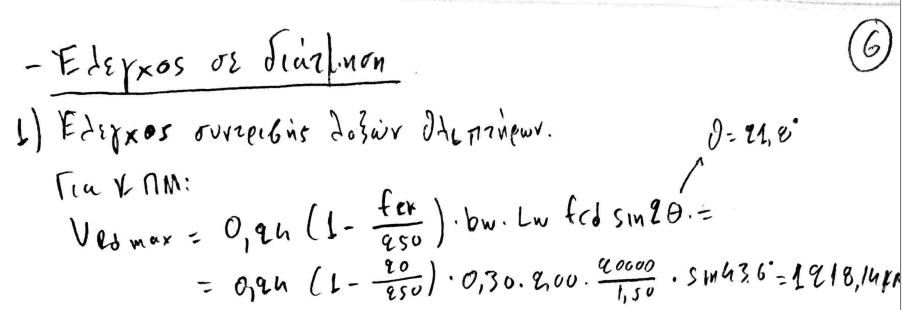 - Έλεγχος σε διάτμηση
6
1) Έλεγχος συντριβής λοξών θλιπτήρων.
θ = 21,8°
Για ΚΠΜ:
VRd max = 0,24 (1 - fck/250) · bw · Lw fcd sin2θ. =
= 0,24 (1 - 20/250) · 0,30 · 2,00 · 20000/1,50 · sin43.6° = 1218,14 kN